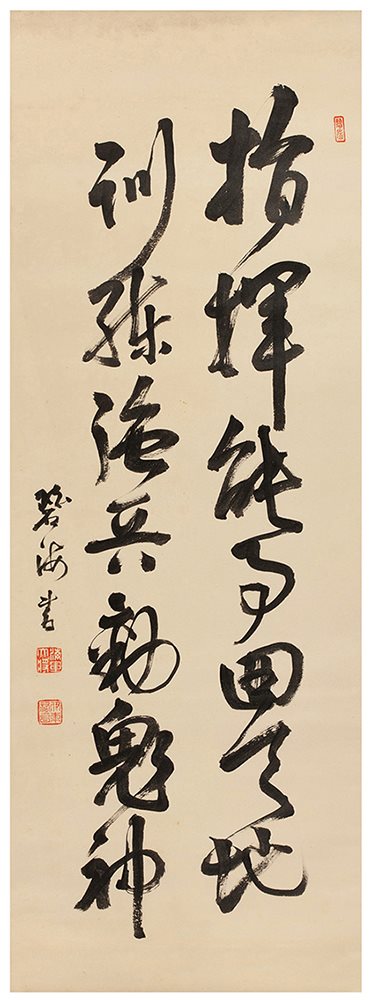 指揮能事回天地
訓練強兵動鬼神
碧海書